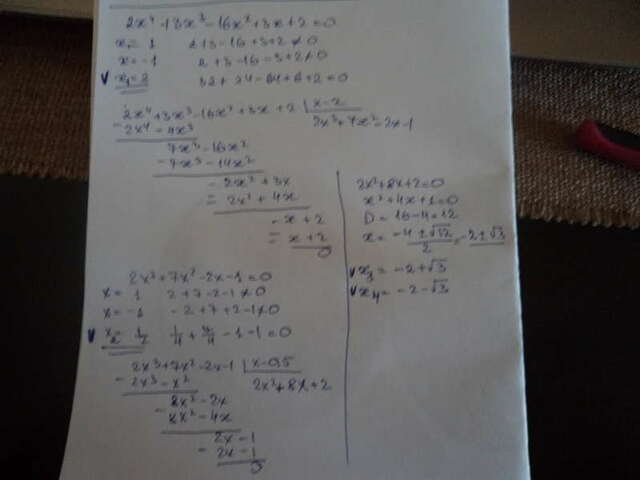 2x⁴+3x³-16x²+3x+2=0
x=1 2+3-16+3+2≠0
x=-1 2+3-16-3+2≠0
v x₁=2 32+24-64+6+2=0
2x⁴+3x³-16x²+3x+2 | x-2
- 2x⁴-4x³ 2x³+7x²-2x-1
7x³-16x²
- 7x³-14x²
- 2x²+3x
= 2x²+4x
- x+2
= x+2
0
2x³+7x²-2x-1=0
x=1 2+7-2-1≠0
x=-1 -2+7+2-1≠0
v x₂=1/2 1/4+7/4-1-1=0
2x³+7x²-2x-1 | x-0,5
- 2x³-x² 2x²+8x+2
8x²-2x
- 8x²-4x
2x-1
- 2x-1
0
2x²+8x+2=0
x²+4x+1=0
D=16-4=12
x=(-4±√12)/2=-2±√3
v x₃=-2+√3
v x₄=-2-√3